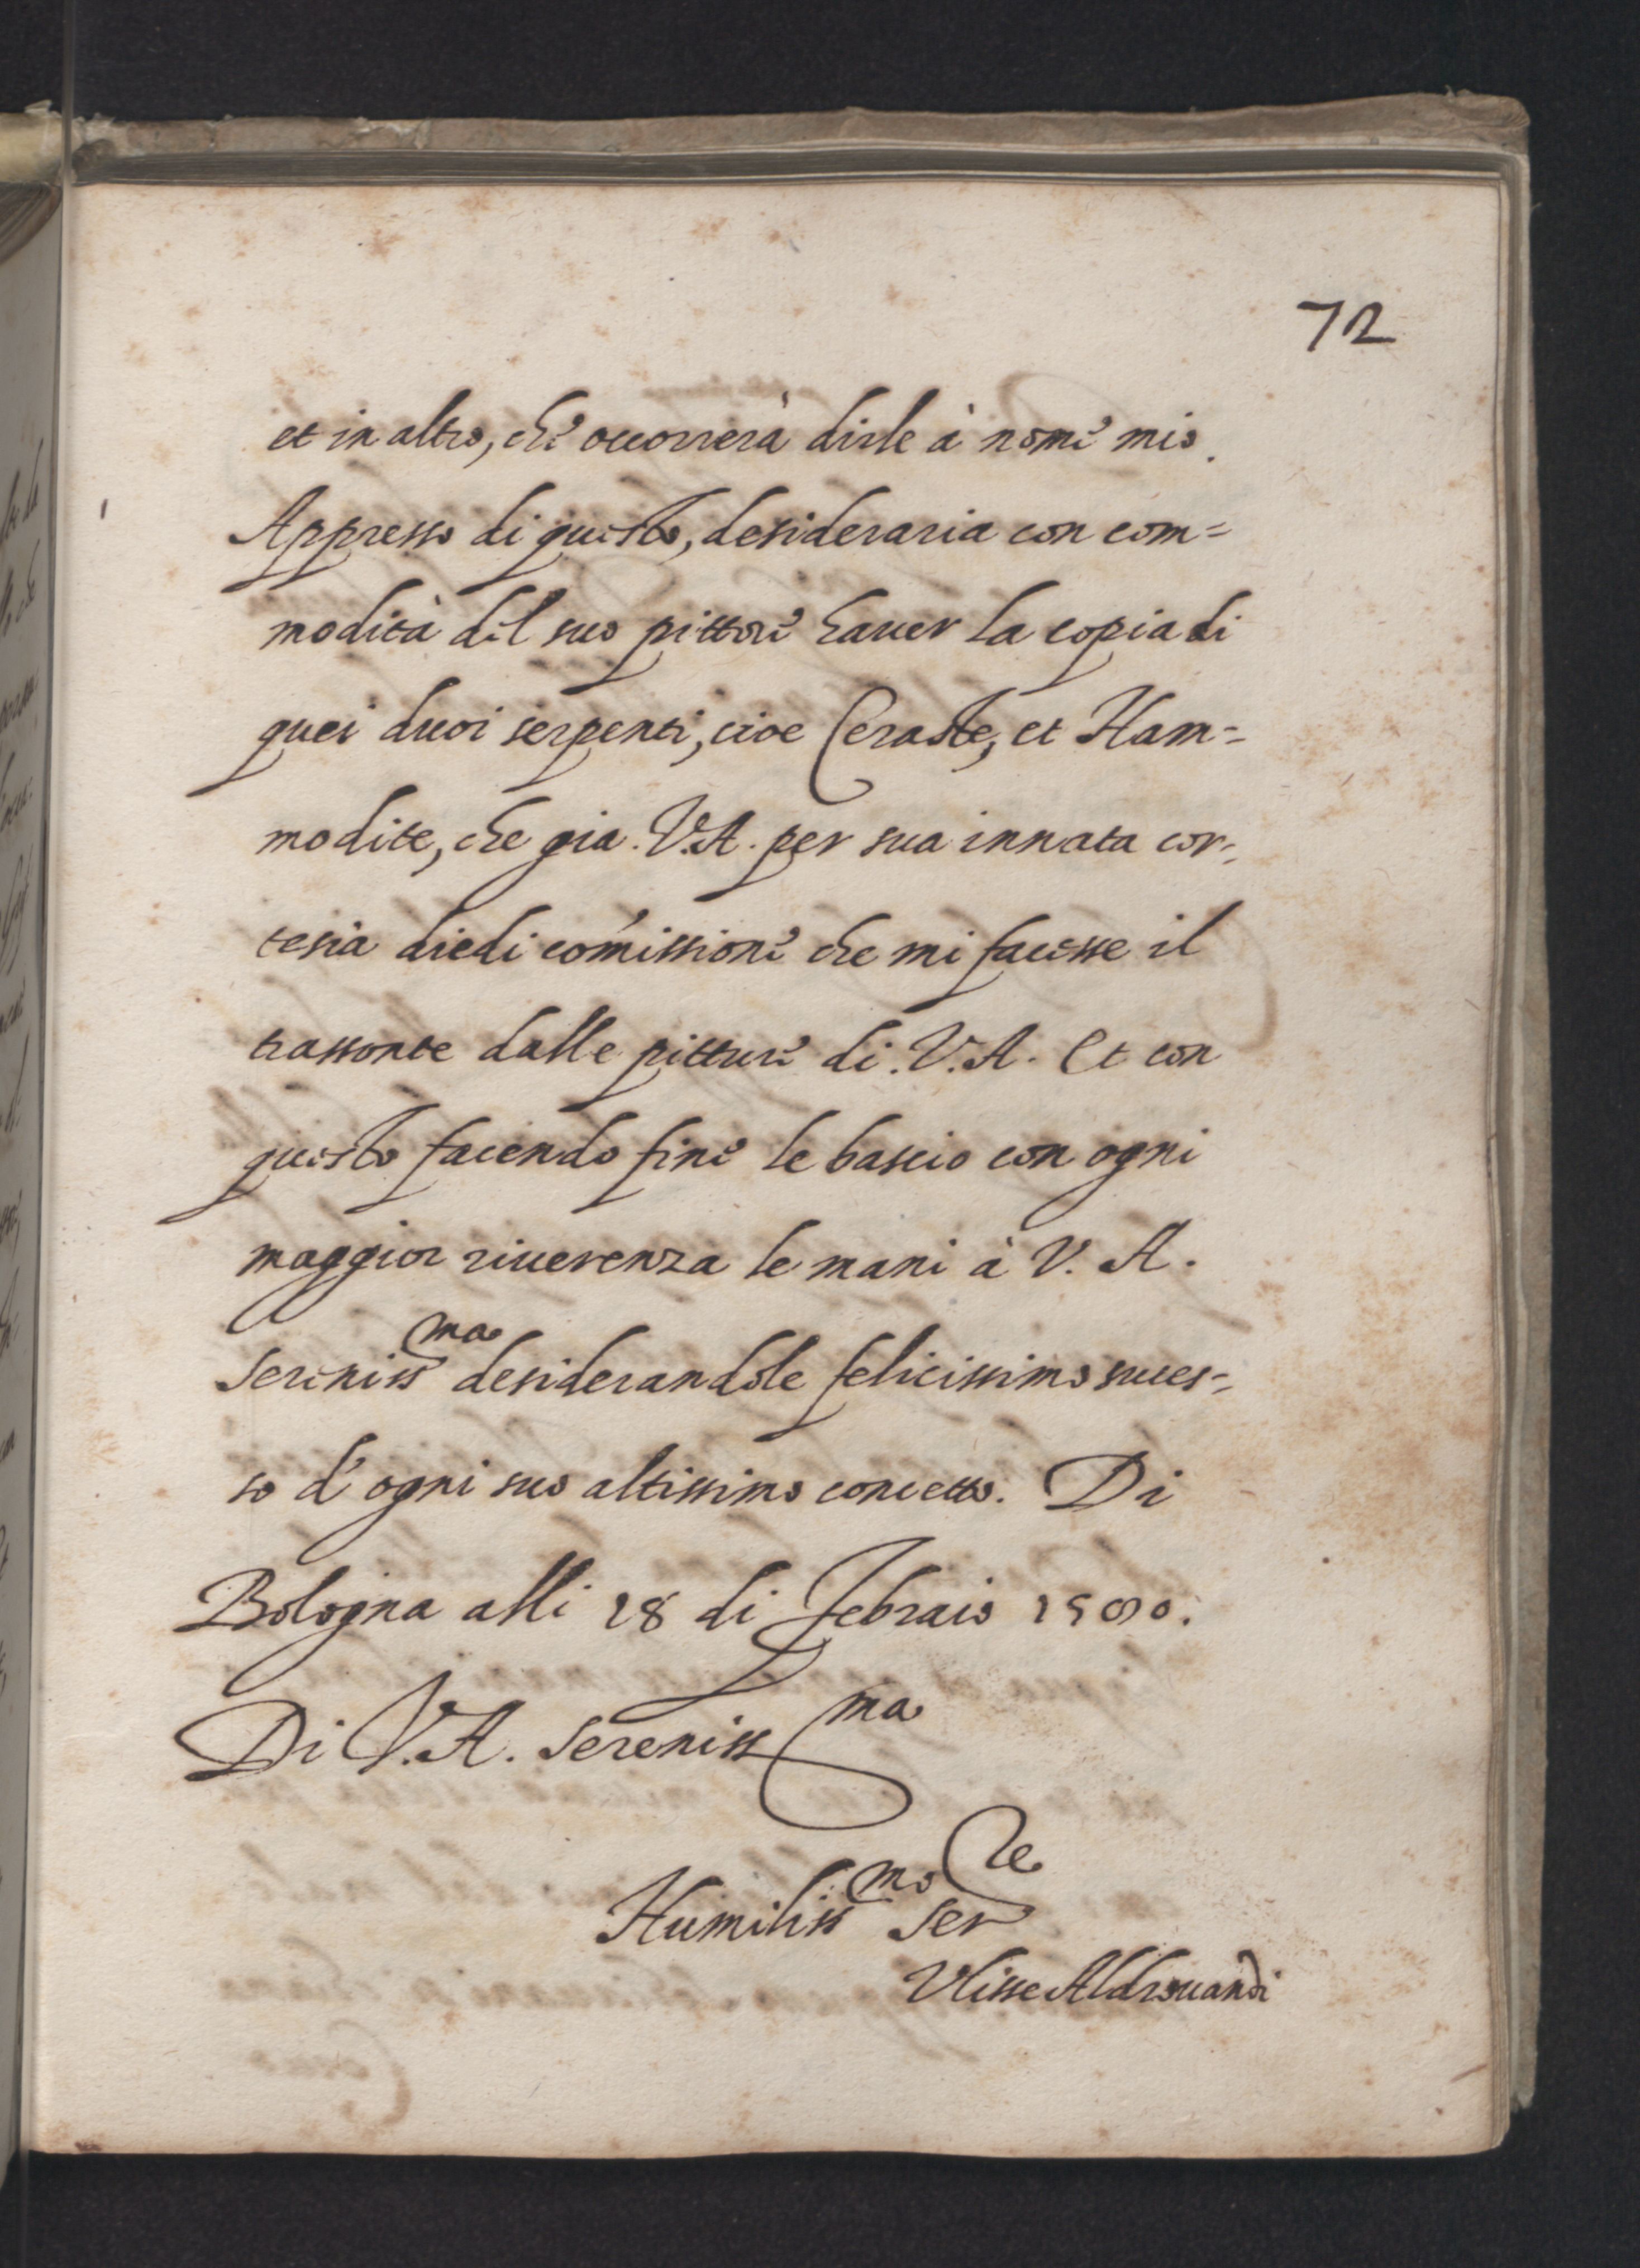 72
et in altro, che occorrerà dirle à nome mio.
Appresso di questo, desideraria con com=
modità del suo pittore hauer la copia di
quei duoi serpenti, cioe Ceraste, et Ham=
modite, che gia. V.A. per sua innata cor=
tesia diedi comissione che mi facesse il
trassonte dalle pitture di. V.A. Et con
questo facendo fine le bascio con ogni
maggior riuerenza le mani à V. A.
Sereniss ma desiderandole felicissimo succes=
so d' ogni suo altissimo concetto. Di
Bologna alli 28 di Febraio 1590.
Di V.A. Sereniss ma
Humiliss mo Ser re
Vlisse Aldrouandi